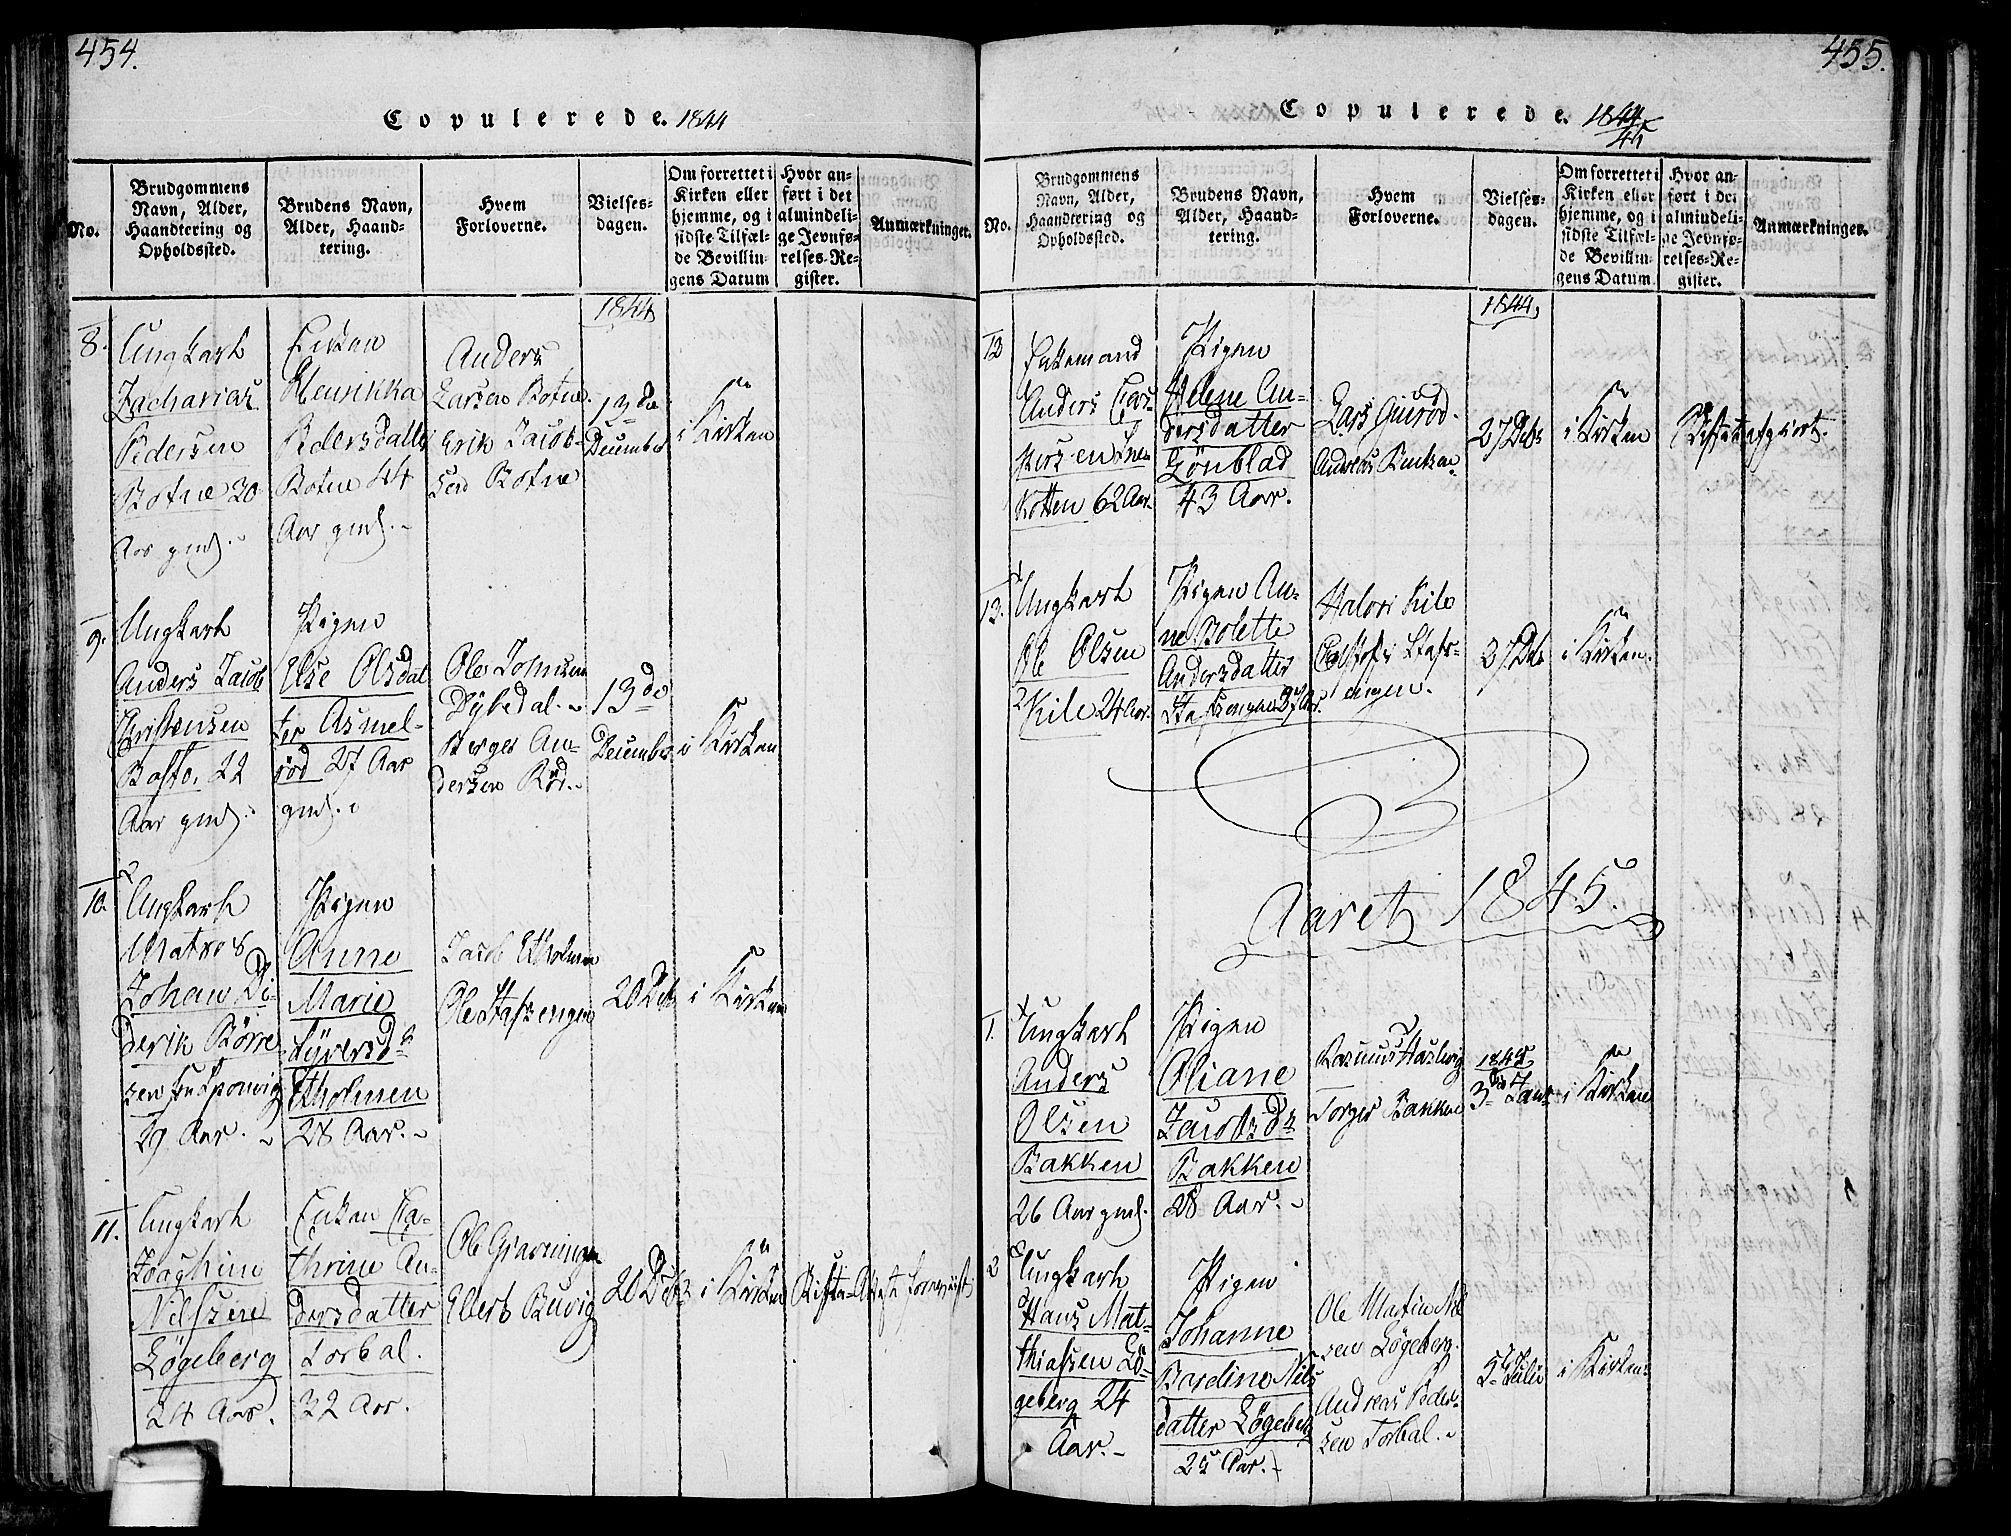 454.
Copulerede. 1844
No.
Brudgommens
Navn, Alder,
Haandtering og
Opholdssted.
Brudens Navn,
Alder, Haand-
tering.
Hvem
Forloverne.
Vielses-
dagen.
Om forrettet i
Kirken eller
hjemme, og i
sidste Tilfæl-
de Bevillin-
gens Datum
Hvor an-
ført i det
almindeli-
ge Jevnfø-
relses-Re-
gister.
Anmærkninger.
1844
8.
Ungkarl
Zacharias
Pedersen
Botne 30
Aar gml.
Enken
Henrikka
Pedersdatter
Botne 44
Aar gml.
Anders
Larsen Botne
Erik Jacob-
sen Botne
13de
December
i Kirken
9.
Ungkarl
Anders Jacob
Christensen
Basto, 22
Aar gml.
Pigen
Else Olsdat
ter Asmel-
röd 27 Aar
gml.
Ole Johnsen
Dybedal.
Berger An-
dersen Röd.
13de
December
i Kirken
10.
Ungkarl
Matros
Johan Di-
derik Börre
sen
29 Aar.
Pigen
Anne
Marie
Syversdr
Etholmen
28 Aar.
Jacob Etholmen
Ole Stafsengen
20 Debr
i Kirken
11.
Ungkarl
Joachim
Nilssen
Lögeberg
24 Aar.
Enken Ca-
thrine An-
dersdatter
Torbal.
32 Aar.
Ole Gravningen
Elert Buvig
20 Debr
i Kirken
455.
Copulerede. 1844
45
No.
Brudgommens
Navn, Alder,
Haandtering og
Opholdssted.
Brudens Navn,
Alder, Haand-
tering.
Hvem
Forloverne.
Vielses-
dagen.
Om forrettet i
Kirken eller
hjemme, og i
sidste Tilfæl-
de Bevillin-
gens Datum
Hvor an-
ført i det
almindeli-
ge Jevnfø-
relses-Re-
gister.
Anmærkninger.
1844
12
Enkemand
Anders
62 Aar.
Pigen
Helene An-
dersdatter
Gönblad
43 Aar.
Lars
Andreas
27 Debr
i Kirken
13.
Ungkarl
Ole Olsen
Kile 24 Aar.
Pigen An-
ne Bolette
Andersdatter
Stafsengen
Halvor Kile
Stafs-
engen.
27 Debr
i Kirken.
Aaret 1845.
1.
Ungkarl
Anders
Olsen
Bakken
26 Aar gml.
Pigen
Oliane
Jacobsdr
Bakken
28 Aar.
Rasmus Haslevig
Torger Bakken
1845
3die Janr
i Kirken
2
Ungkarl
Hans Mat-
thiassen Lö-
geberg 24
Aar.
Pigen
Johanne
Bardine Nils
datter Lögeberg
25 Aar.
Ole Martin Nil
sen Lögeberg.
Andreas Peder-
sen Torbal.
Julii
i Kirken